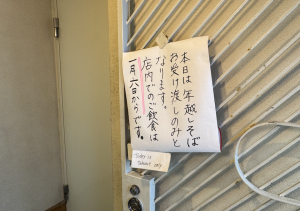 本日は年越しそば
お受け渡しのみと
なります。
店内でのご飲食は
一月六日からです。